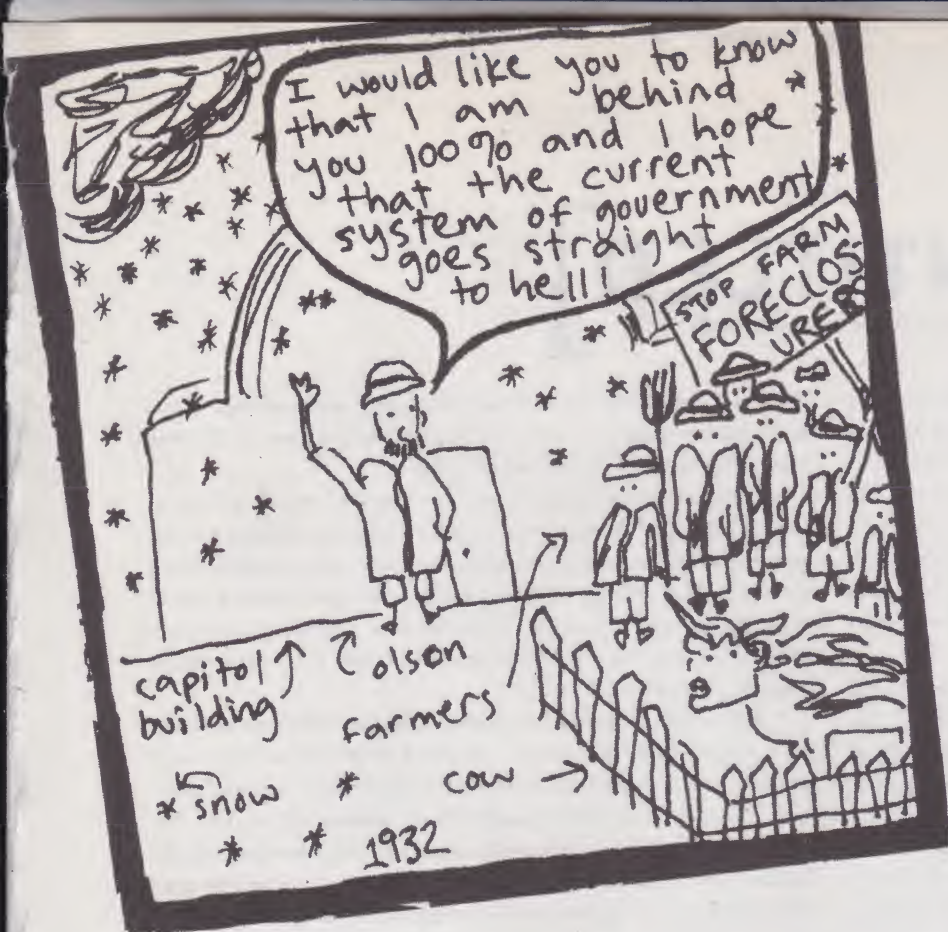 I would like you to know
that I am behind
you 100% and I hope
that the current
system of government
goes straight
to hell!
STOP FARM
FORECLOS-
URES
capitol
building
olson
farmers
cow
snow
1932